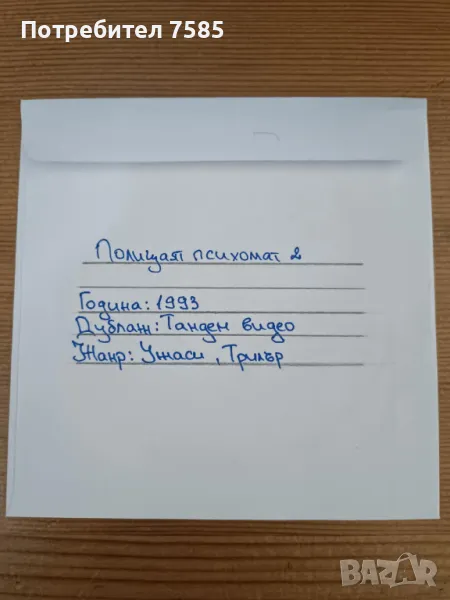 Потребител 7585
Полицаят психопат 2
Година: 1993
Дублаж: Тандем видео
Жанр: Ужаси, Трилър
BAZAR